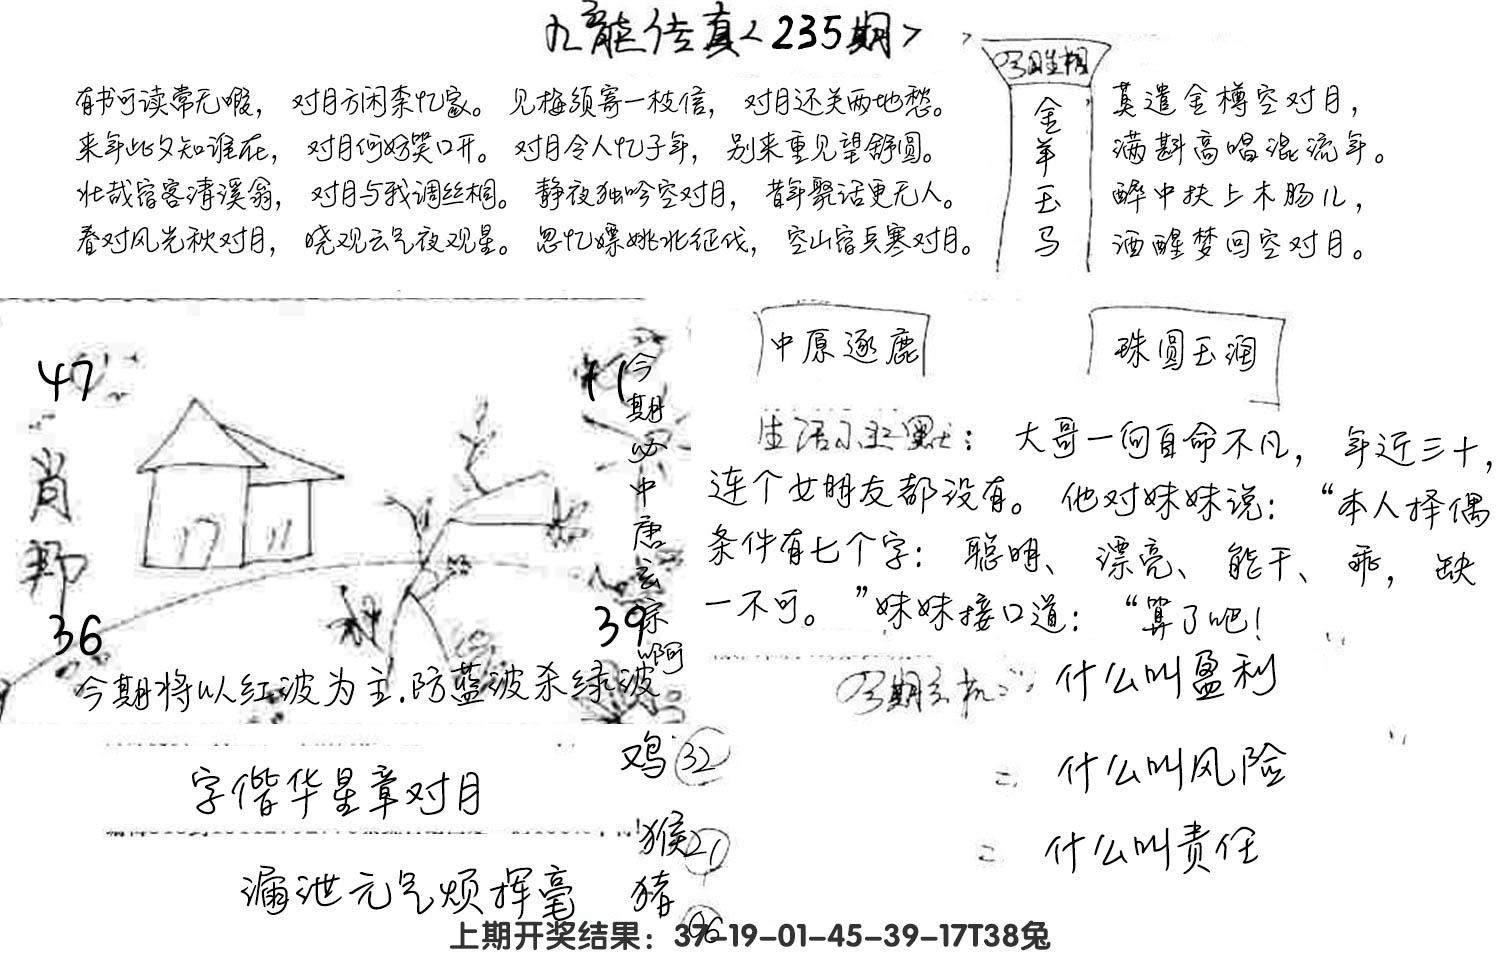 九龙传真<235期>
有书可读常无暇，对月方闲李忆家。见梅须寄一枝信，对月还关两地愁。
来年此夕知谁在，对月何妨笑口开。对月令人忆子年，别来重见望舒圆。
壮哉宿客清溪翁，对月与我调丝桐。静夜独吟空对月，昔年聚话更无人。
春对风光秋对月，晓观云气夜观星。思忆嫖姚北征伐，空山宿兵寒对月。
金羊玉马
莫遣金樽空对月，
满斟高唱混流年。
醉中扶上木肠儿，
酒醒梦回空对月。
47
11
肖
36
39
今期必中唐玄宗啊
今期将以红波为主.防蓝波杀绿波
中原逐鹿
珠圆玉润
生活小幽默：大哥一向自命不凡，年近三十，
连个女朋友都没有。他对妹妹说：“本人择偶
条件有七个字：聪明、漂亮、能干、乖，缺
一不可。”妹妹接口道：“算了吧！
今期玄机：什么叫盈利
什么叫风险
什么叫责任
字偕华星章对月
漏泄元气烦挥毫
鸡32
猴21
猪06
上期开奖结果：37-19-01-45-39-17T38兔